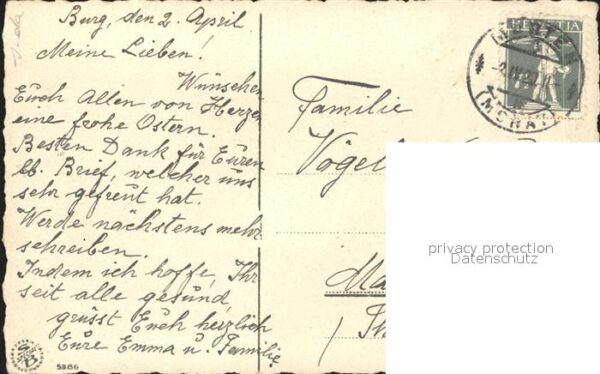 Burg, den 2. April.
Meine Lieben!
Wünschen
Euch Allen von Herzen
eine frohe Ostern.
Besten Dank für Euren
lb. Brief, welcher uns
sehr gefreut hat.
Werde nächstens mehr
schreiben.
Indem ich hoffe, Ihr
seit alle gesund,
grüsst Euch herzlich
Eure Emma u. Familie.
5886
HELVETIA
(MORAT)
Familie
Vögel
Ma
Th
privacy protection
Datenschutz